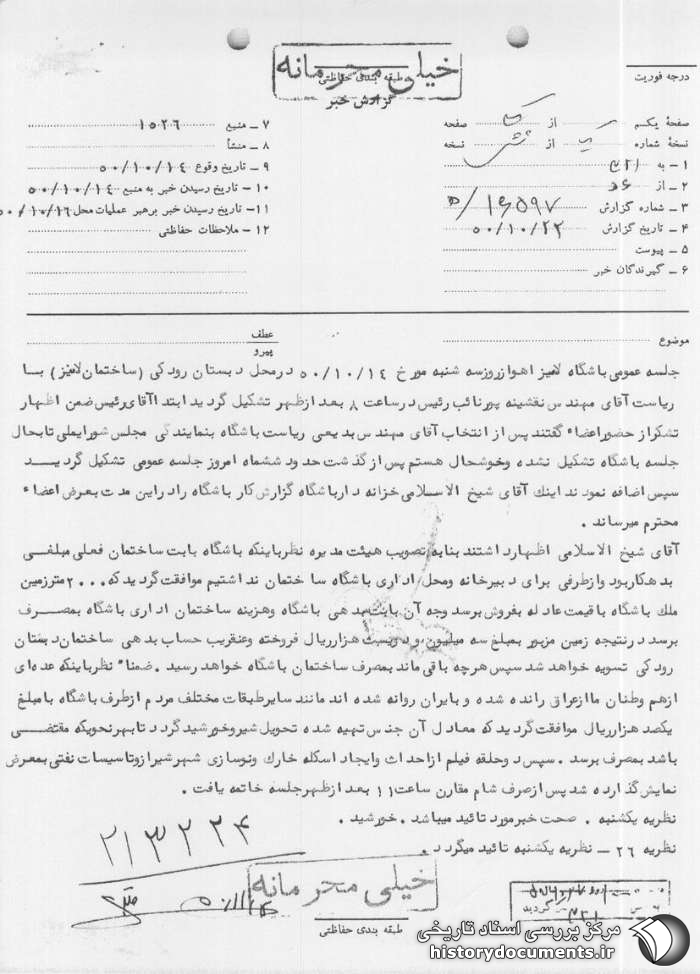 خیلی محرمانه
طبقه بندی حفاظتی
گزارش خبر
درجه فوریت
صفحهٔ یکم از صفحه
نسخهٔ شماره از شش نسخه
۱ ـ به ۳۲۱
۲ ـ از ۶ ه
۳ ـ شماره گزارش ۱۶۵۹۷/ ه
۴ ـ تاریخ گزارش ۵۰/۱۰/۲۲
۵ ـ پیوست
۶ ـ گیرندگان خبر
۷ ـ منبع ۱۵۲۶
۸ ـ منشأ
۹ ـ تاریخ وقوع ۵۰/۱۰/۱۴
۱۰ ـ تاریخ رسیدن خبر به منبع ۵۰/۱۰/۱۴
۱۱ ـ تاریخ رسیدن خبر برهبر عملیات محل ۵۰/۱۰/۱۶
۱۲ ـ ملاحظات حفاظتی
موضوع
عطف
پیرو
جلسه عمومی باشگاه لاینز اهواز روز سه شنبه مورخ ۵۰/۱۰/۱۴ در محل دبستان رودکی (ساختمان لاینز) با
ریاست آقای مهندس نقشینه پور نائب رئیس در ساعت ۸ بعد از ظهر تشکیل گردید ابتدا آقای رئیس ضمن اظهار
تشکر از حضور اعضاء گفتند پس از انتخاب آقای مهندس بدیعی ریاست باشگاه بنمایندگی مجلس شورایملی تا بحال
جلسه باشگاه تشکیل نشده و خوشحال هستم پس از گذشت حدود ششماه امروز جلسه عمومی تشکیل گردید
سپس اضافه نمودند اینک آقای شیخ الاسلامی خزانه دار باشگاه گزارش کار باشگاه را در این مدت بعرض اعضاء
محترم میرساند .
آقای شیخ الاسلامی اظهار داشتند بنا به تصویب هیئت مدیره نظر باینکه باشگاه بابت ساختمان فعلی مبلغی
بدهکار بود و از طرفی برای دبیرخانه و محل اداری باشگاه ساختمان نداشتیم موافقت گردید که ۲۰۰۰ متر زمین
ملک باشگاه با قیمت عادله بفروش برسد وجه آن بابت بدهی باشگاه و هزینه ساختمان اداری باشگاه بمصرف
برسد در نتیجه زمین مزبور بمبلغ سه میلیون و دویست هزار ریال فروخته و عنقریب حساب بدهی ساختمان دبستان
رودکی تسویه خواهد شد سپس هرچه باقی ماند بمصرف ساختمان باشگاه خواهد رسید . ضمناً نظر باینکه عده ای
از هم وطنان ما از عراق رانده شده و بایران روانه شده اند مانند سایر طبقات مختلف مردم از طرف باشگاه با مبلغ
یکصد هزار ریال موافقت گردید که معادل آن جنس تهیه شده تحویل شیر و خورشید گردد تا بهر نحویکه مقتضی
باشد بمصرف برسد . سپس دو حلقه فیلم از احداث و ایجاد اسکله خارک و نوسازی شهر شیراز و تاسیسات نفتی بمعرض
نمایش گذارده شد پس از صرف شام مقارن ساعت ۱۱ بعد از ظهر جلسه خاتمه یافت .
نظریه یکشنبه . صحت خبر مورد تائید میباشد . خورشید .
نظریه ۲۶ ـ نظریه یکشنبه تائید میگردد .
۲۱۳۲۲۴
خیلی محرمانه
طبقه بندی حفاظتی
گردید
مرکز بررسی اسناد تاریخی
historydocuments.ir